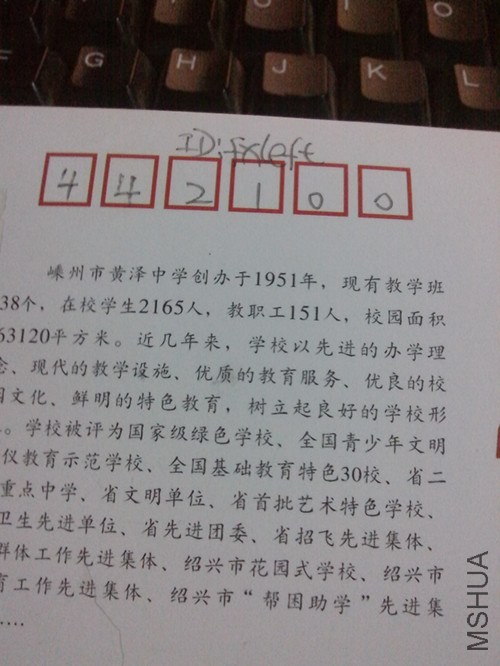 G H J K L
ID:fxleft
4 4 2 1 0 0
嵊州市黄泽中学创办于1951年，现有教学班
38个，在校学生2165人，教职工151人，校园面积
63120平方米。近几年来，学校以先进的办学理
念、现代的教学设施、优质的教育服务、优良的校
园文化、鲜明的特色教育，树立起良好的学校形
。学校被评为国家级绿色学校、全国青少年文明
仪教育示范学校、全国基础教育特色30校、省二
重点中学、省文明单位、省首批艺术特色学校、
卫生先进单位、省先进团委、省招飞先进集体、
群体工作先进集体、绍兴市花园式学校、绍兴市
育工作先进集体、绍兴市“帮困助学”先进集
....
MSHUA